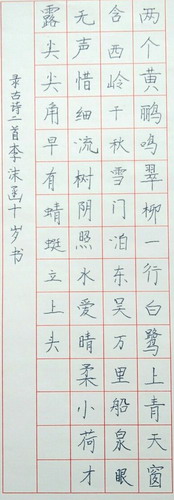 两个黄鹂鸣翠柳一行白鹭上青天窗
含西岭千秋雪门泊东吴万里船泉眼
无声惜细流树阴照水爱晴柔小荷才
露尖尖角早有蜻蜓立上头
录古诗二首李沫函十岁书